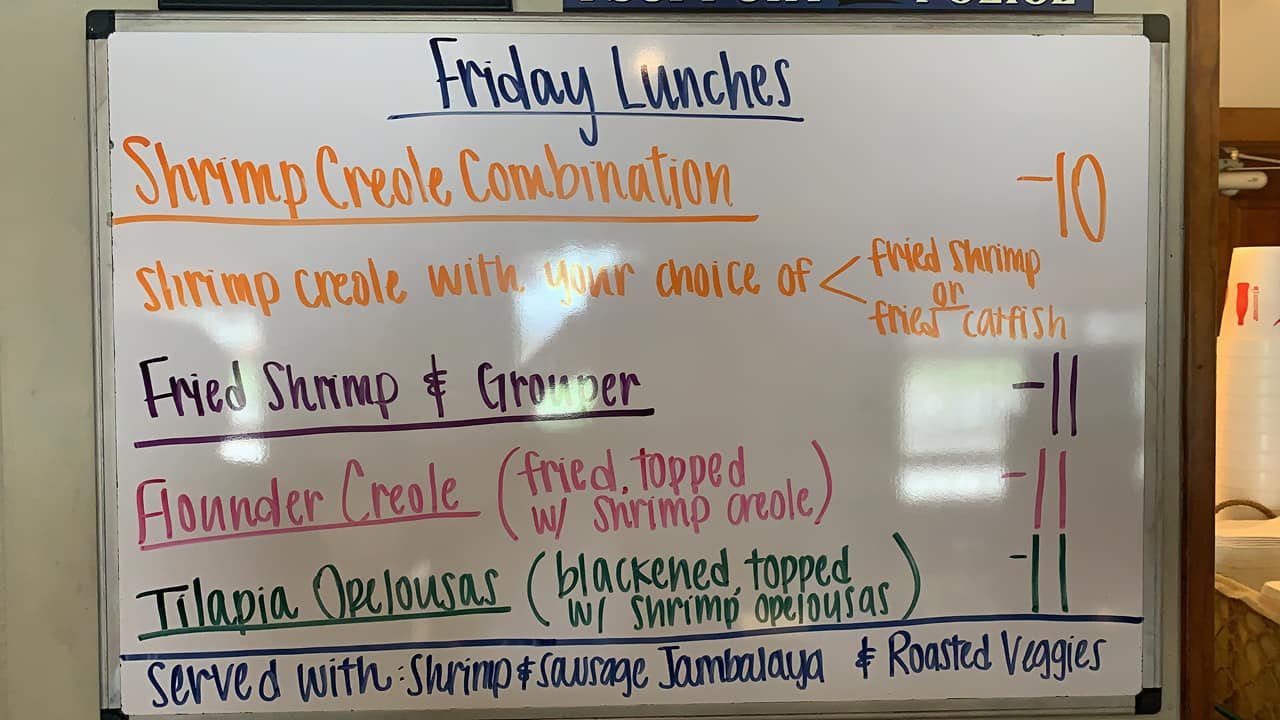 SUPPORT POLICE
Friday Lunches
Shrimp Creole Combination -10
Shrimp creole with your choice of < fried shrimp
or
fried catfish
Fried Shrimp & Grouper -11
Flounder Creole (fried, topped -11
w/ shrimp creole)
Tilapia Opelousas (blackened, topped -11
w/ shrimp opelousas)
Served with: Shrimp & Sausage Jambalaya & Roasted Veggies